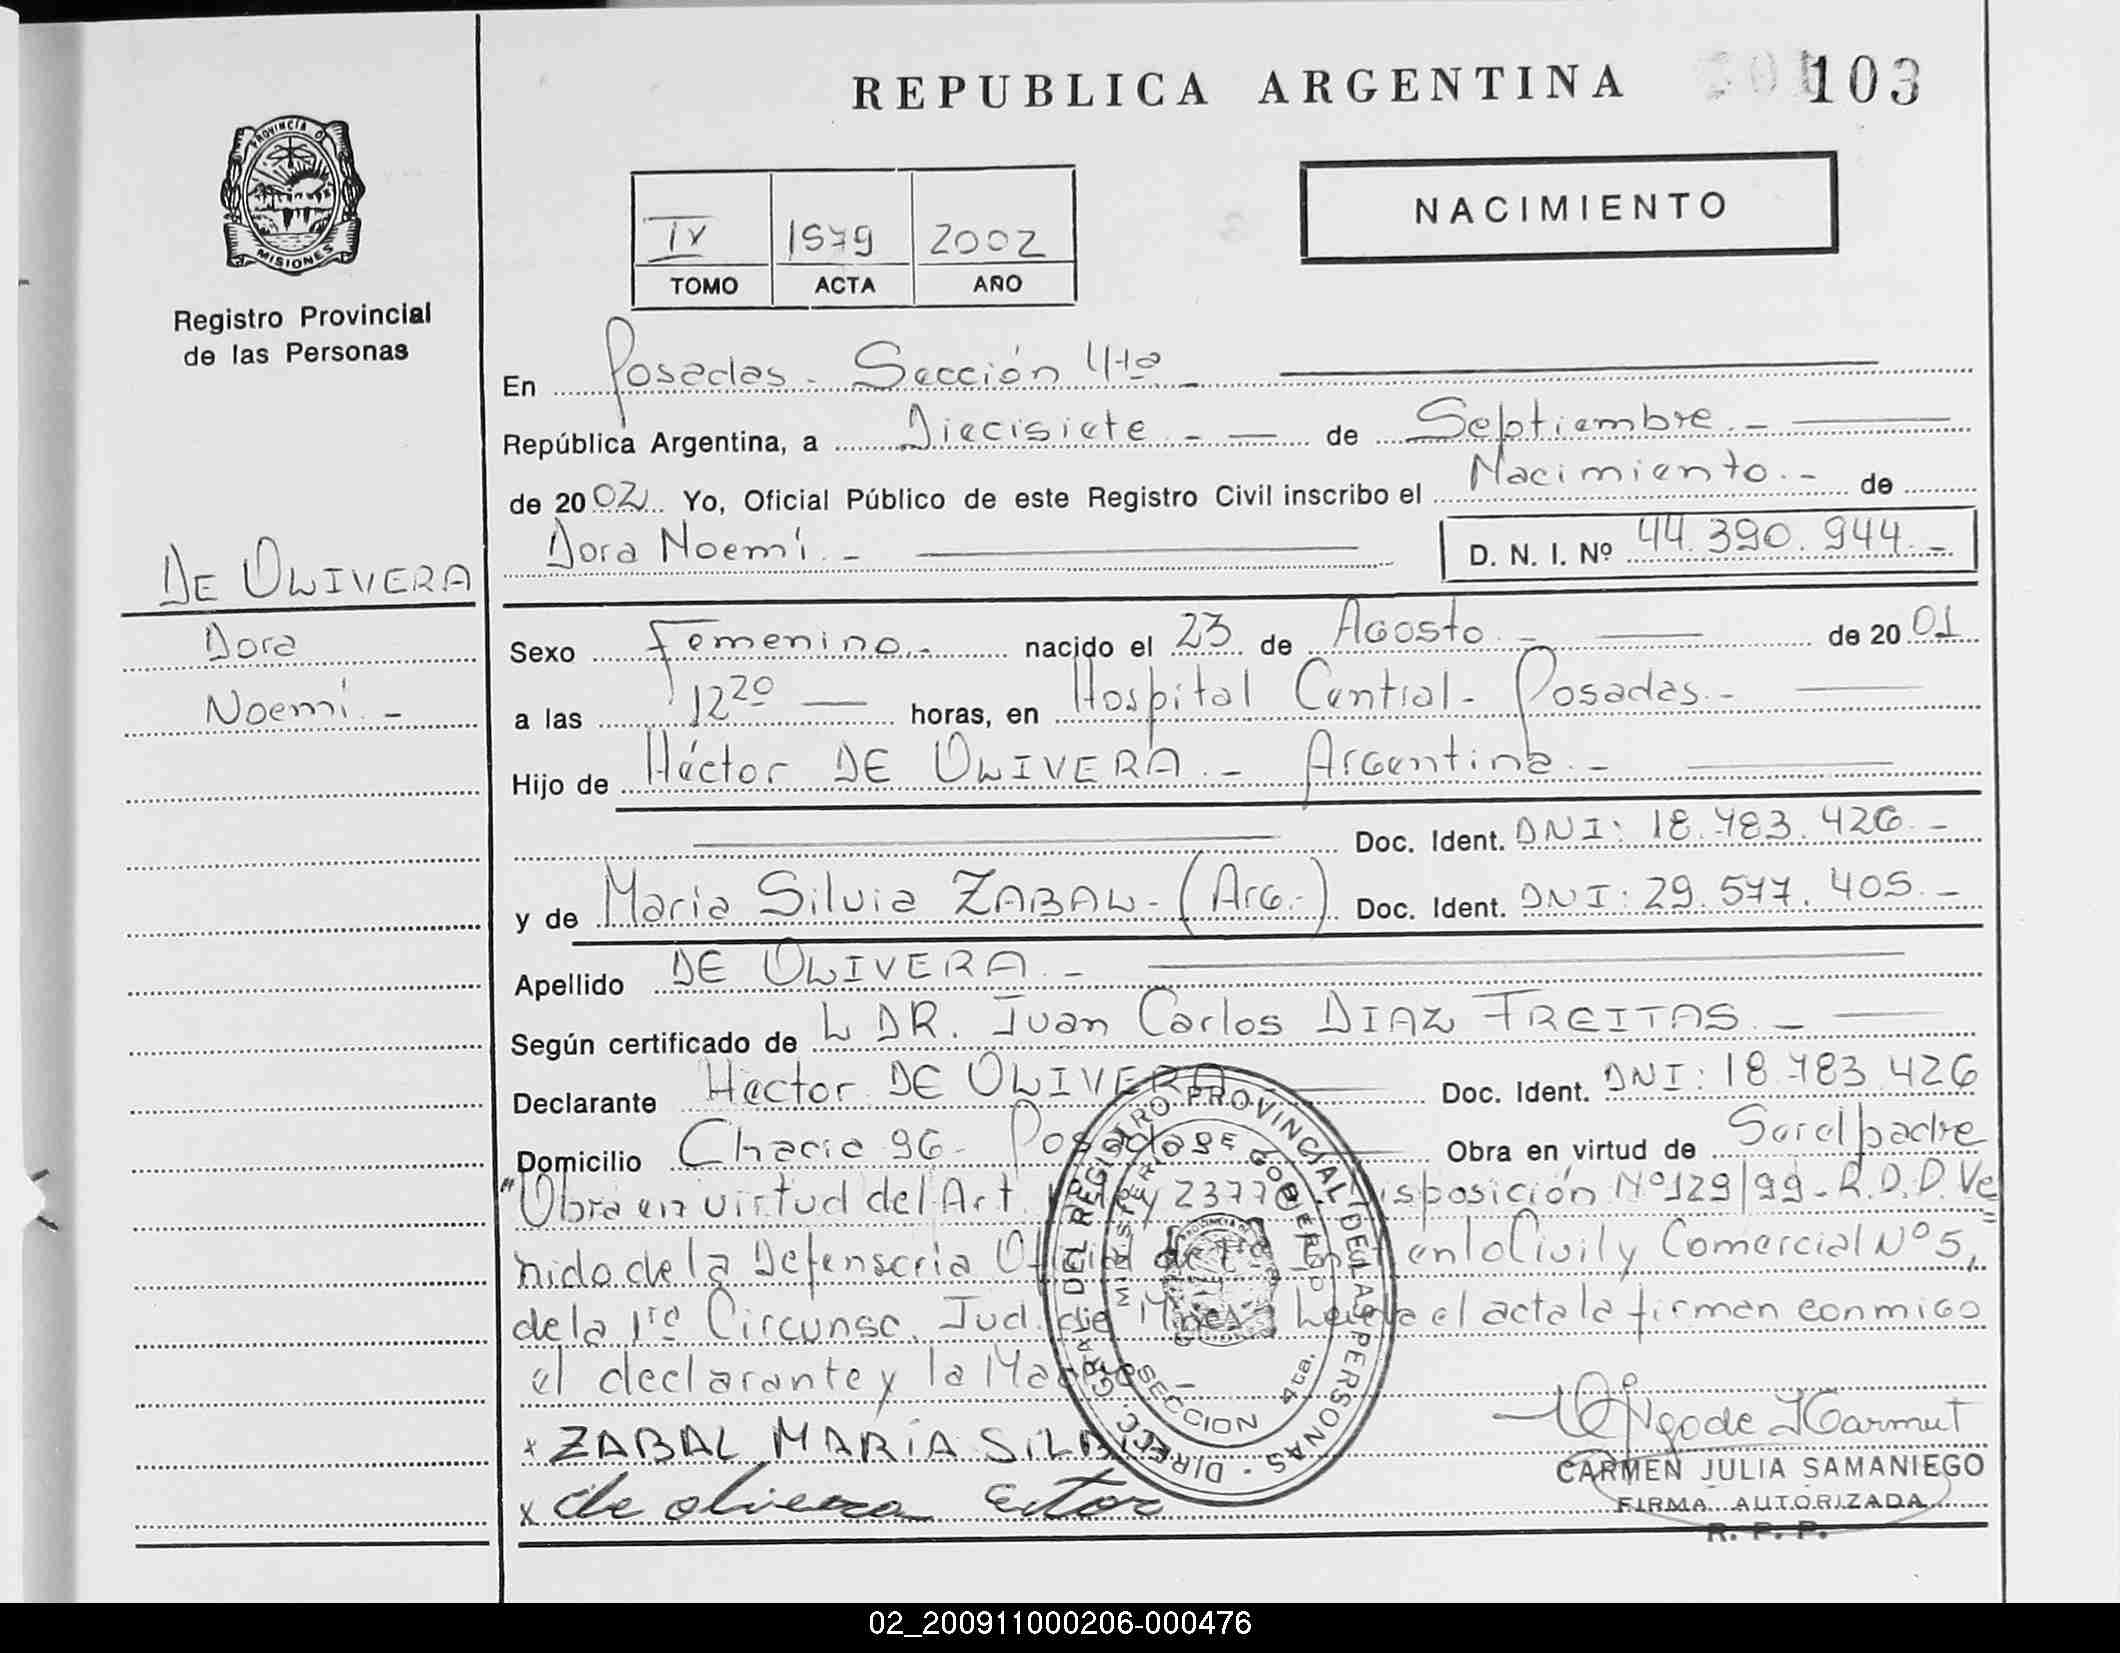 REPUBLICA ARGENTINA 103
PROVINCIA D MISIONES
NACIMIENTO
IV 1579 2002
TOMO ACTA AÑO
Registro Provincial
de las Personas
En Posadas - Sección 4ta -
República Argentina, a Diecisiete - - de Septiembre -
de 2002 Yo, Oficial Público de este Registro Civil inscribo el Nacimiento - de
Dora Noemí - D. N. I. Nº 44.390.944 -
DE OLIVERA
Dora
Noemí -
Sexo Femenino - nacido el 23 de Agosto - de 2001
a las 12 20 horas, en Hospital Central - Posadas -
Hijo de Héctor DE OLIVERA - Argentina -
Doc. Ident. DNI: 18.783.426 -
y de Maria Silvia ZABAL - (Arg.-) Doc. Ident. DNI: 29.577.405 -
Apellido DE OLIVERA -
Según certificado de L DR. Juan Carlos DIAZ FREITAS -
Declarante Héctor DE OLIVERA Doc. Ident. DNI: 18.783.426
Domicilio Chacra 96 - Posadas Obra en virtud de Ser el padre
"Obra en virtud del Art. Ley 23776 Disposición Nº 129/99 - R.D.D. Ve
nido de la Defensoria Oficial de 1ra Inst. en lo Civil y Comercial Nº 5,
de la 1ra Circunsc. Jud. de Mnes. Leida el acta la firman conmigo
el declarante y la Madre -
x ZABAL MARÍA SILBI
x de olivera Ector
CARMEN JULIA SAMANIEGO
FIRMA AUTORIZADA
R. P. P.
DIRECC. GRAL. DEL REGISTRO PROVINCIAL DE LAS PERSONAS
MINISTERIO DE GOBIERNO
SECCION 4ta.
02_200911000206-000476